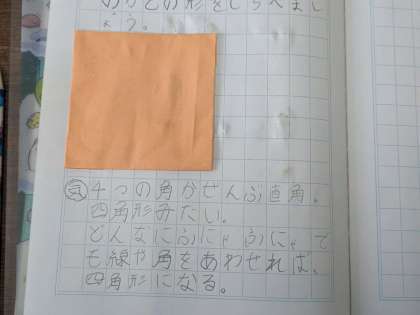 のかどの形をしらべまし
ょう。
気 4つの角がぜんぶ直角。
四角形みたい。
どんなにふにゃふにゃで
も線や角をあわせれば、
四角形になる。